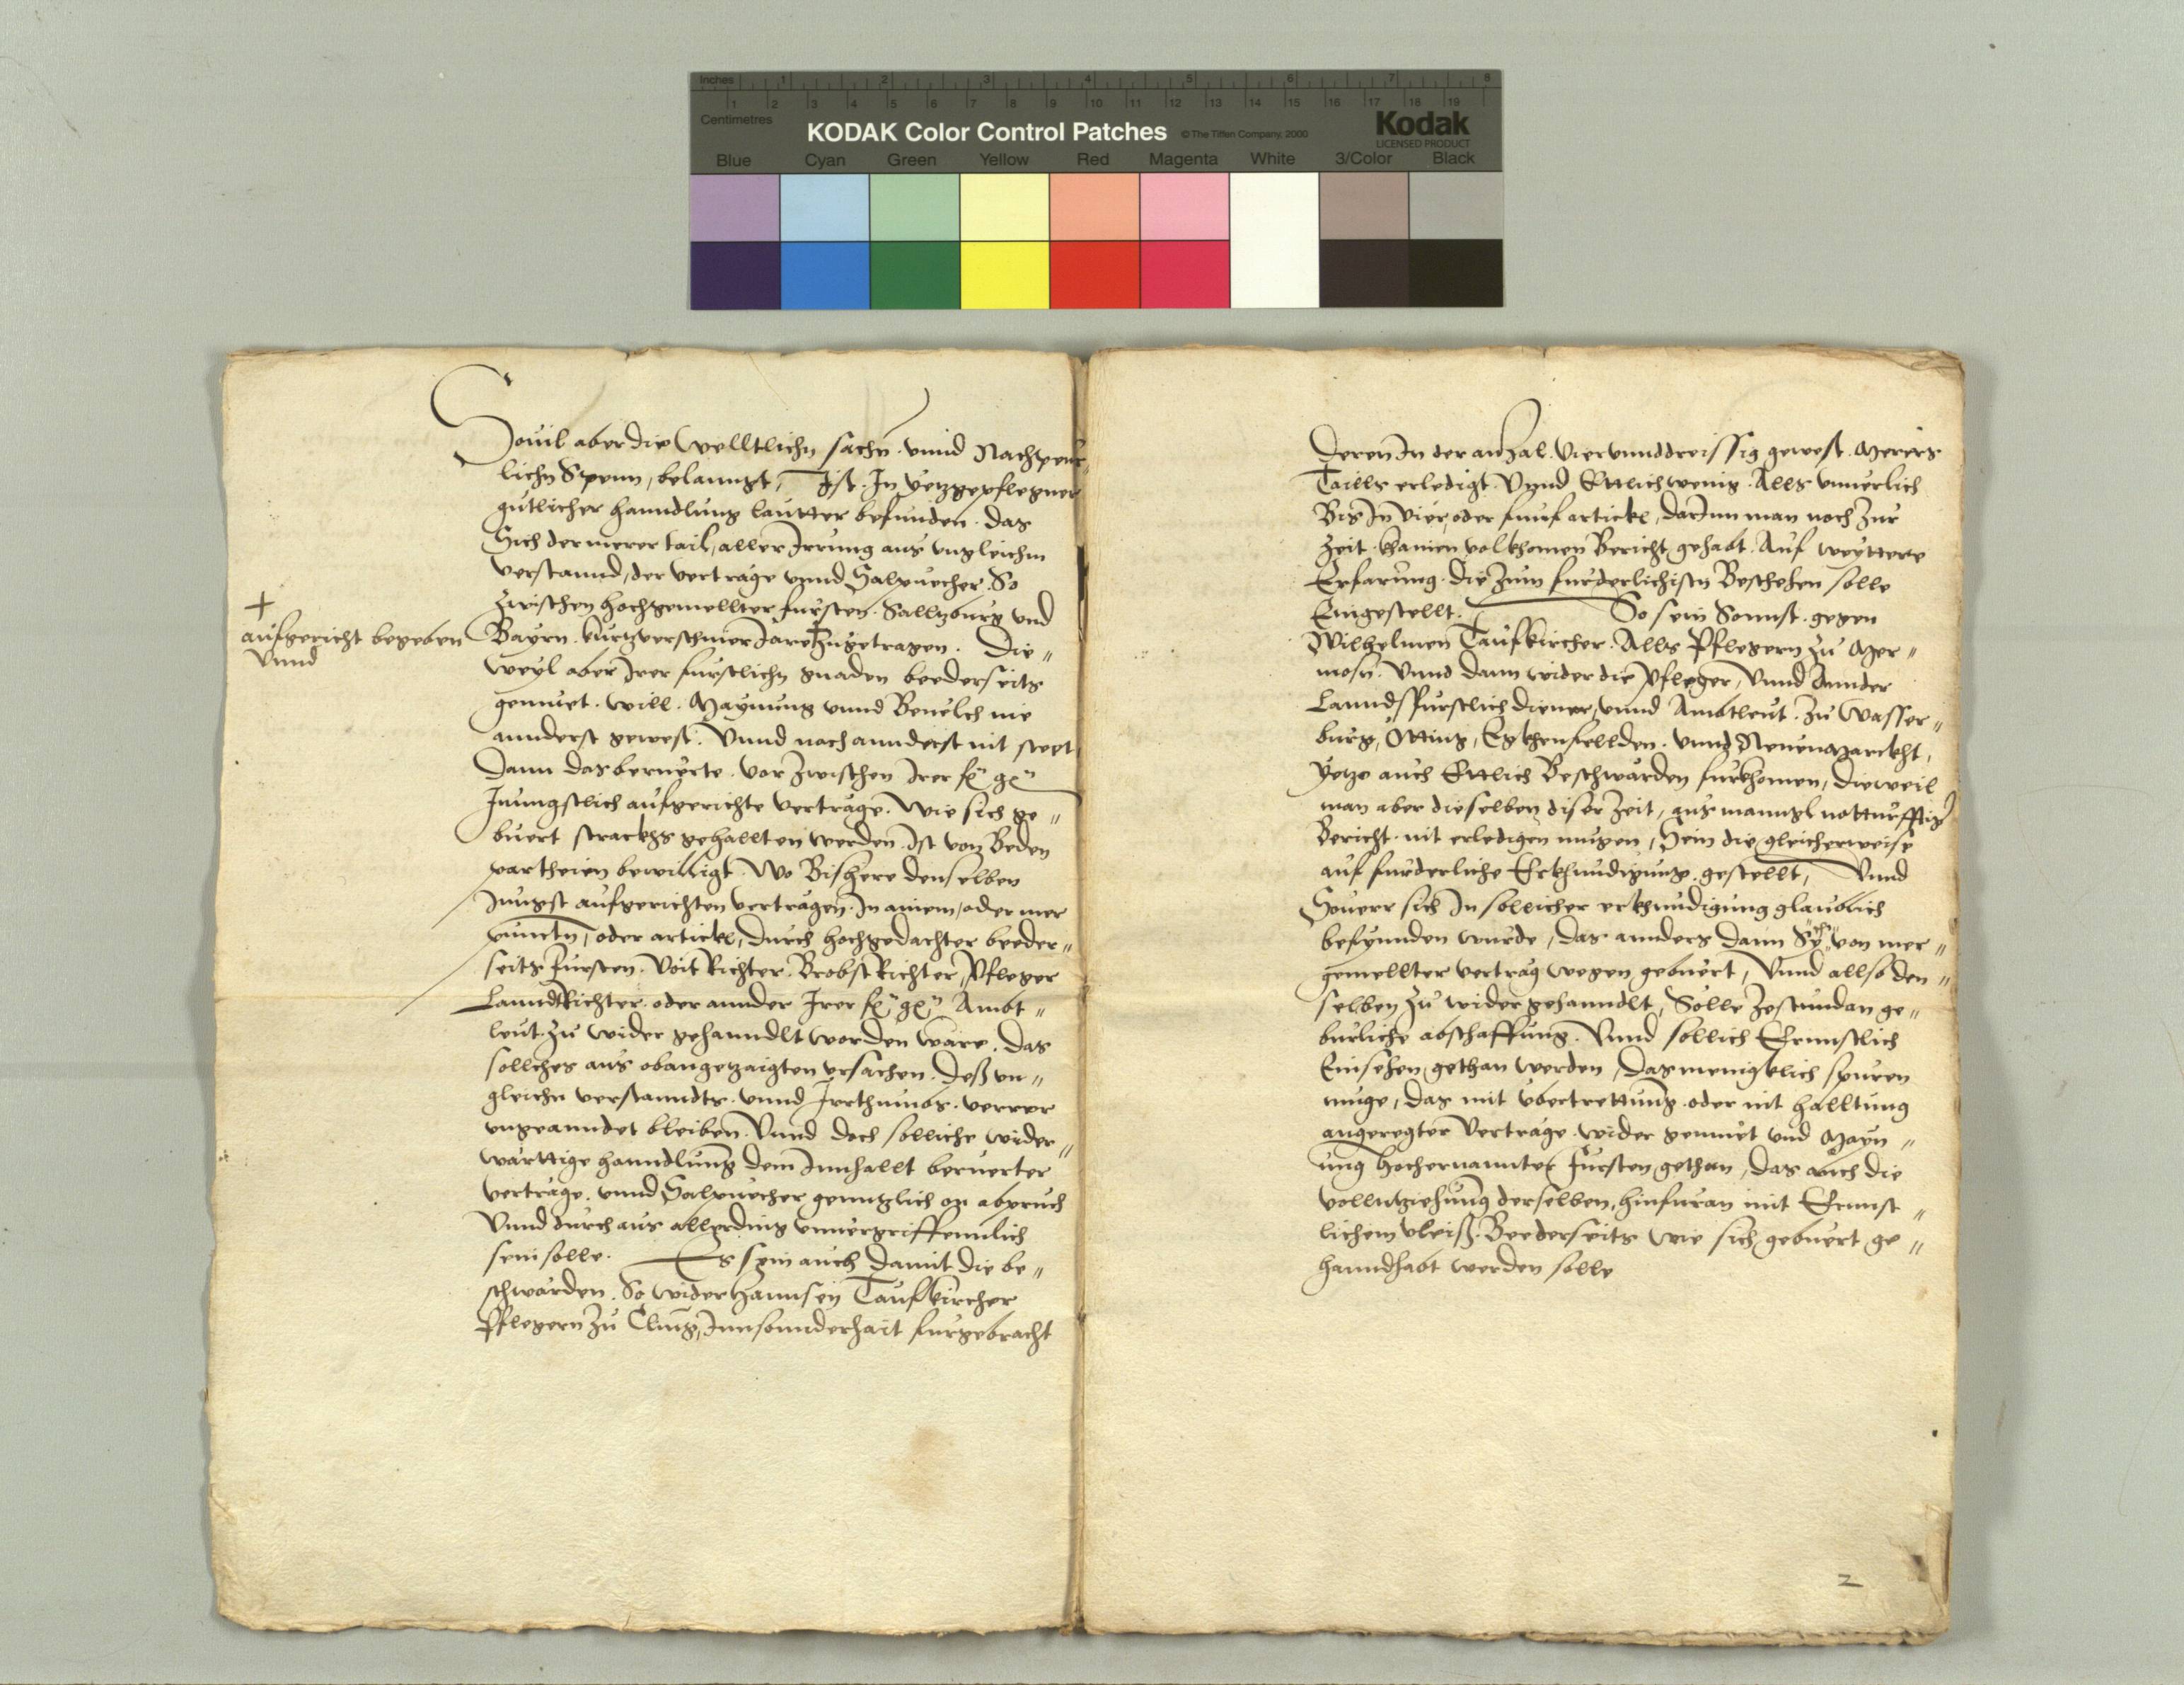 Inches 1 2 3 4 5 6 7 8
1 2 3 4 5 6 7 8 9 10 11 12 13 14 15 16 17 18 19
Centimetres
KODAK Color Control Patches © The Tiffen Company, 2000
Kodak
LICENSED PRODUCT
Blue Cyan Green Yellow Red Magenta White 3/Color Black
Souil aber die Welltlichn sachn. vnnd Nachper
lichn Spenn, belanngt, Ist. In yetzgepflegner
gutlicher hanndlung lautter befunden. das
Sich der merer tail, aller Irrung aus vngleichm
verstannd, der vertrage vnnd Salpuecher. So
zwischen hochgemellter fursten. Salltzburg vnd
+
aufgericht begeben
vnnd
Bayrn. kurtzverschiner Jare + zugetragen. Die„
weyl aber Irer furstlichn gnaden beederseits
gemuet. will. Maynung vnnd Beuelch nie
annderst gewest. Vnnd noch annderst nit steet
Dann das beruerte. vor zwischen Irer fr gn
Junngstlich aufgerichte vertrage. Wie sich ge„
buert strackhs gehallten werden. Ist von Beden
partheien bewilligt. Wo Bishere denselben
Jungst aufgerichten vertragen. In ainem, oder mer
punctn, oder artickl, durch hochgedachter beeder„
seits fursten. Voit Richter. Brobst Richter, Pfleger
Lanndtrichter. oder annder Irer fr gn Ambt„
leut. zu wider gehanndlt worden ware. Das
sollches aus obangetzaigten vrsachen. Deß vn„
gleichn verstanndts. vnnd Irrthumbs. verrer
vngeanndet bleiben. Vnnd doch solliche wider„
warttige hanndlung dem Innhallt beruerter
vertrage. vnnd Salpuecher genntzlich on abpruch
Vnnd durchaus allerding vnuergriffennlich
sein solle. Es sein auch damit die be„
schwarden. So wider Hannsen Taufkircher
Pflegern zu Cling, Innsonnderhait furgebracht
Deren In der anzal. Viervnnddreissig gewest. Merers
Taills erledigt. Vnnd Ettlich wenig. Alls vnnerlich
Bis In vier, oder funf artickl, darInn man noch zur
Zeit. khainen volkhomen Bericht gehabt. Auf weyttere
Erfarung. die zum furderlichistn Beschehen solle
Eingestellt. So sein Sonnst. gegen
Wilhelmen Taufkircher. Alls Pflegern zu Mer„
mosn. Vnnd dann wider die Pfleger, Vnnd Annder
Lanndsfurstlich diener, vnnd Ambtleut. zu Wasser„
burg, Otting, Egkhenfellden. vnnd Neuenmarckht,
Yetzo auch Ettlich Beschwarden furkhomen, dieweil
man aber dieselben diser Zeit, aus manngl notturfftigs
Bericht. nit erledigen mugen, Sein die gleicherweise
auf furderliche Erkhundigung. gestellt, Vnnd
Souerr sich In sollicher erkhundigung glaublich
befynnden wurde, das annders dann Sichs von mer„
gemellter vertrag wegen gebuert, Vnnd allso den„
selben zu wider gehanndlt, Solle zestundan ge„
burliche abschaffung. Vnnd sollich Ernnstlich
Einsehen gethan werden, das menigklich spuren
muge, das mit vbertrettung. oder nit halltung
angeregter Vertrage. wider gemuet vnd Mayn„
ung hochernannter fursten gethan, das auch die
volltziehung derselben, hinfuran mit Ernnst„
lichem vleiß. Beederseits wie sich gebuert ge„
hanndhabt werden solle
2